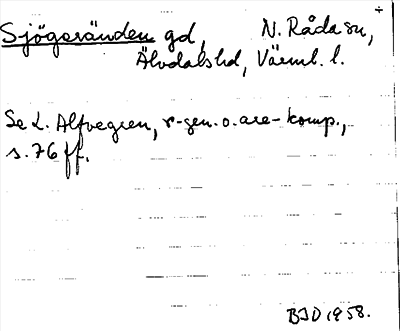 Sjögränden gd, N. Råda sn,
Älvdals hd, Värml. l.
Se L. Alfvegren, r-gen. o. are-komp.,
s. 76 ff.
BJD 1958.